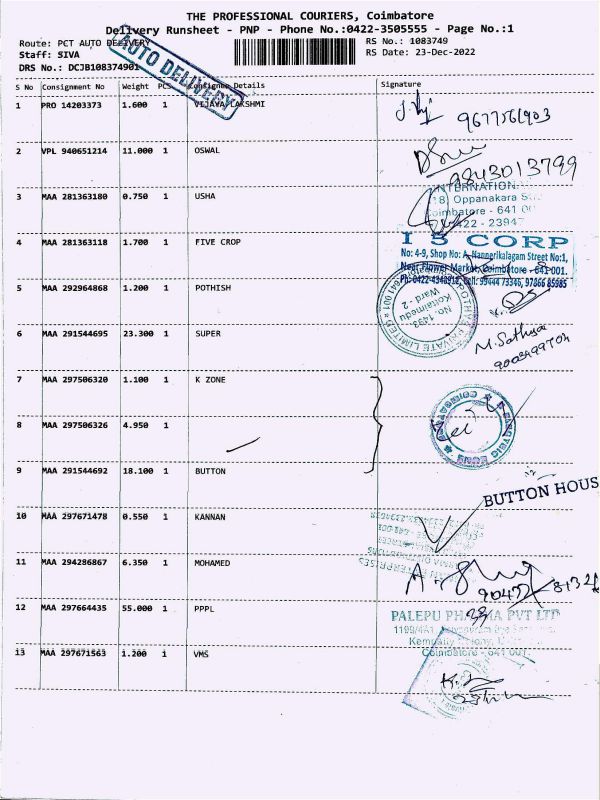 THE PROFESSIONAL COURIERS, Coimbatore
Delivery Runsheet - PNP - Phone No.:0422-3505555 - Page No.:1
Route: PCT AUTO DELIVERY
RS No.: 1083749
Staff: SIVA
RS Date: 23-Dec-2022
DRS No.: DCJB108374901
AUTO DELIVERY
S No Consignment No Weight PCS Consignee Details Signature
1 PRO 14203373 1.600 1 VIJAYA LAKSHMI
9677561903
2 VPL 940651214 11.000 1 OSWAL
9843013799
3 MAA 281363180 0.750 1 USHA
INTERNATION
Oppanakara
Coimbatore - 641 00
4 MAA 281363118 1.700 1 FIVE CROP
I 5 CORP
No: 4-9, Shop No: A, Nannerikalagam Street No:1,
Near Flower Market, Coimbatore - 641 001.
5 MAA 292964868 1.200 1 POTHISH
No-1493,
Kottaimedu
Ward - 2
PRIVATE LIMITED
6 MAA 291544695 23.300 1 SUPER
M. Sathya
7 MAA 297506320 1.100 1 K ZONE
8 MAA 297506326 4.950 1
9 MAA 291544692 18.100 1 BUTTON
BUTTON HOUS
10 MAA 297671478 0.550 1 KANNAN
11 MAA 294286867 6.350 1 MOHAMED
12 MAA 297664435 55.000 1 PPPL
PALEPU PHARMA PVT LTD
Coimbatore - 641 001.
13 MAA 297671563 1.200 1 VMS